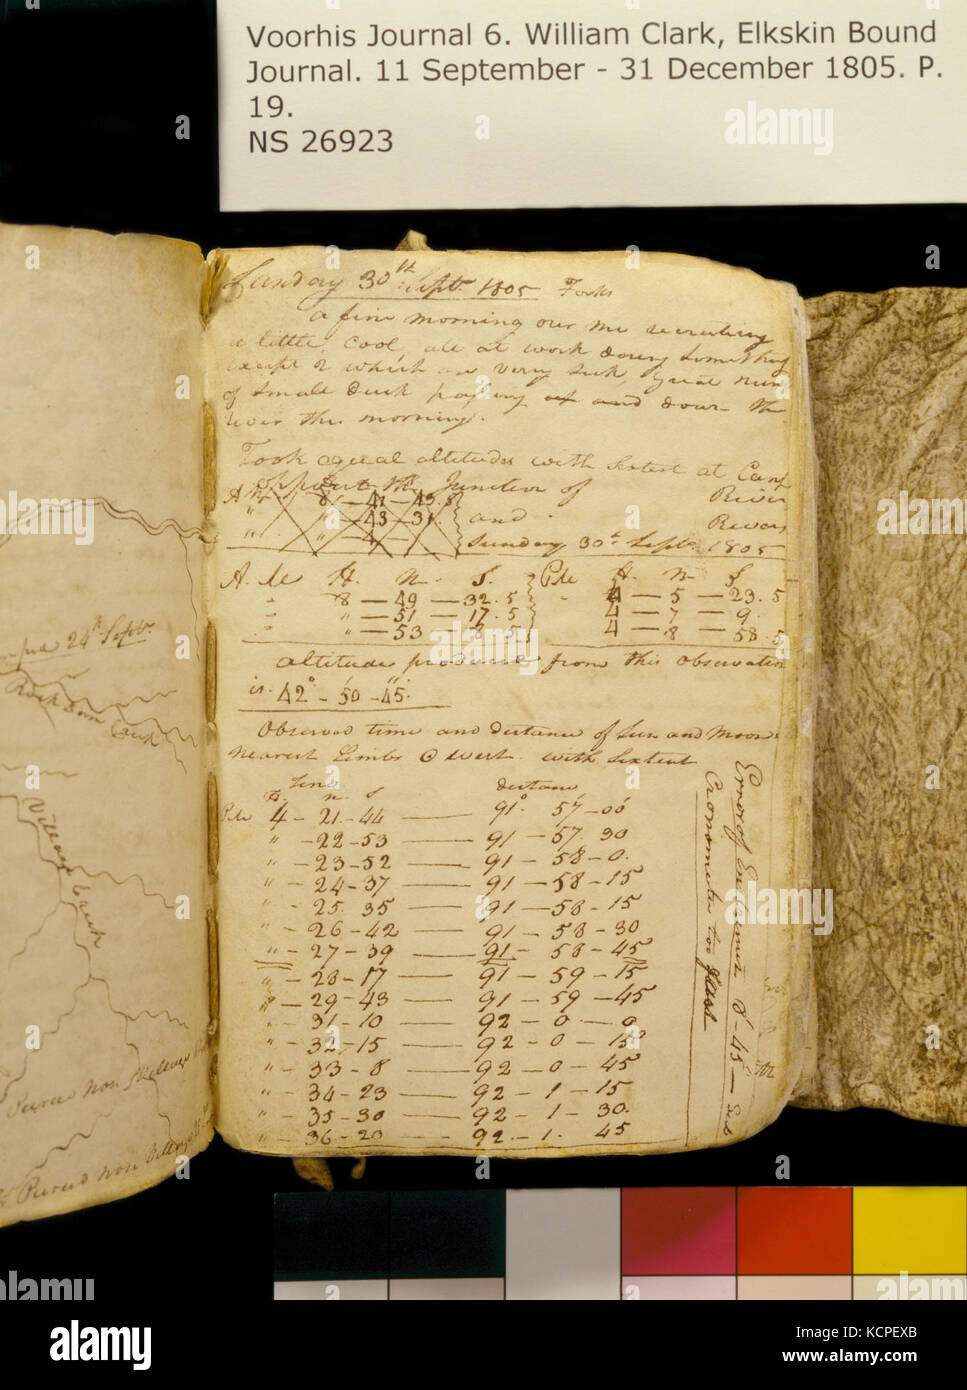 Voorhis Journal 6. William Clark, Elkskin Bound
Journal. 11 September - 31 December 1805. P.
19.
NS 26923
Sunday 30th Septr. 1805 Forks
a fine morning our me recruiting
a little cool, all at work doing Something
except 2 which are very Sick, Great num
of Small Duck passing and down the
river this morning.
Took equal altitudes with Sextent at Camp
opposit the junction of River
and Rivers
Sunday 30th Septr. 1805
A. M H. M. S. P.M H. M S
" 8 — 49 — 32.5 " 4 — 5 — 23.5
" " — 51 — 17.5 4 — 7 — 9.
" " — 53 — 8.5 4 — 8 — 58.5
altitude produced from this observation
is. 42° – 50' – 45".
Observed time and distance of Sun and Moons
nearest Limbs West. with Sextent
Time distance
H. m S
P.M 4 – 21 – 44 — 91° – 57' – 00"
" – 22 – 53 — 91 – 57. 30
" – 23 – 52 — 91 – 58 – 0.
" – 24 – 37 — 91 – 58 – 15
" – 25. 35 — 91 – 58 – 15
" – 26 – 42 — 91 – 58 – 30
" – 27 – 39 — 91 – 58 – 45
" – 28 – 17 — 91 – 59 – 15
" – 29 – 43 — 91 – 59 – 45
" – 31 – 10 — 92 – 0 – 0
" – 32 – 15 — 92 – 0 – 15
" – 33 – 8 — 92 – 0 – 45
" – 34 – 23 — 92 – 1 – 15
" – 35 – 30 — 92 – 1 – 30.
" – 36 – 20 — 92. – 1. 45
Error of 8' – 45"
Cronometer too
24th Septr.
Rock Dam Creek
Village Creek
Pierced Nose Villages
Pierced Nose Villages
a
alamy
Image ID: KCPEXB
www.alamy.com